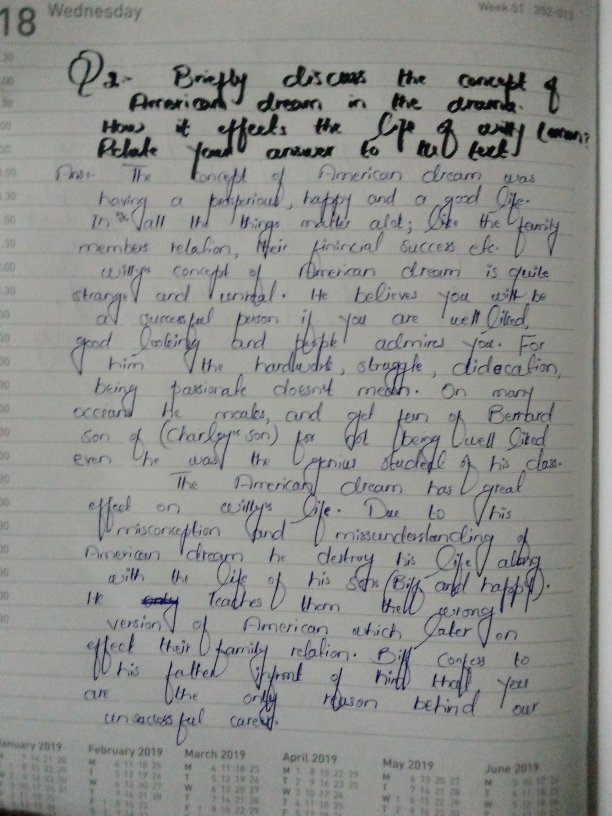 18 Wednesday
Week 51 · 352-013
Q2- Briefly discuss the concept of
American dream in the drama.
How it effects the life of willy Loman?
Relate your answer to the text
Ans:- The concept of American dream was
having a prosperious, happy and a good life.
In all the things matter alot; like the family
members relation, their finincial success etc.
willy's concept of American dream is quite
strange and unreal. He believes you will be
a successful person if you are well liked,
good looking and people admires you. For
him the hardwork, struggle, didecation,
being passionate doesn't mean. On many
he moaks, and get fun of Bernard
son of (Charley's son) for not being well liked
even he was the genius student of his class.
The American dream has great
effect on willy's life. Due to his
misconception and missunderstanding of
American dream he destroy his life along
with the life of his sons (Biff and happy).
He teaches them the wrong
version of American which later on
effect their family relation. Biff confess to
his father infront of him that you
are the only reason behind our
unsuccessful career.
January 2019 February 2019 March 2019 April 2019 May 2019 June 2019